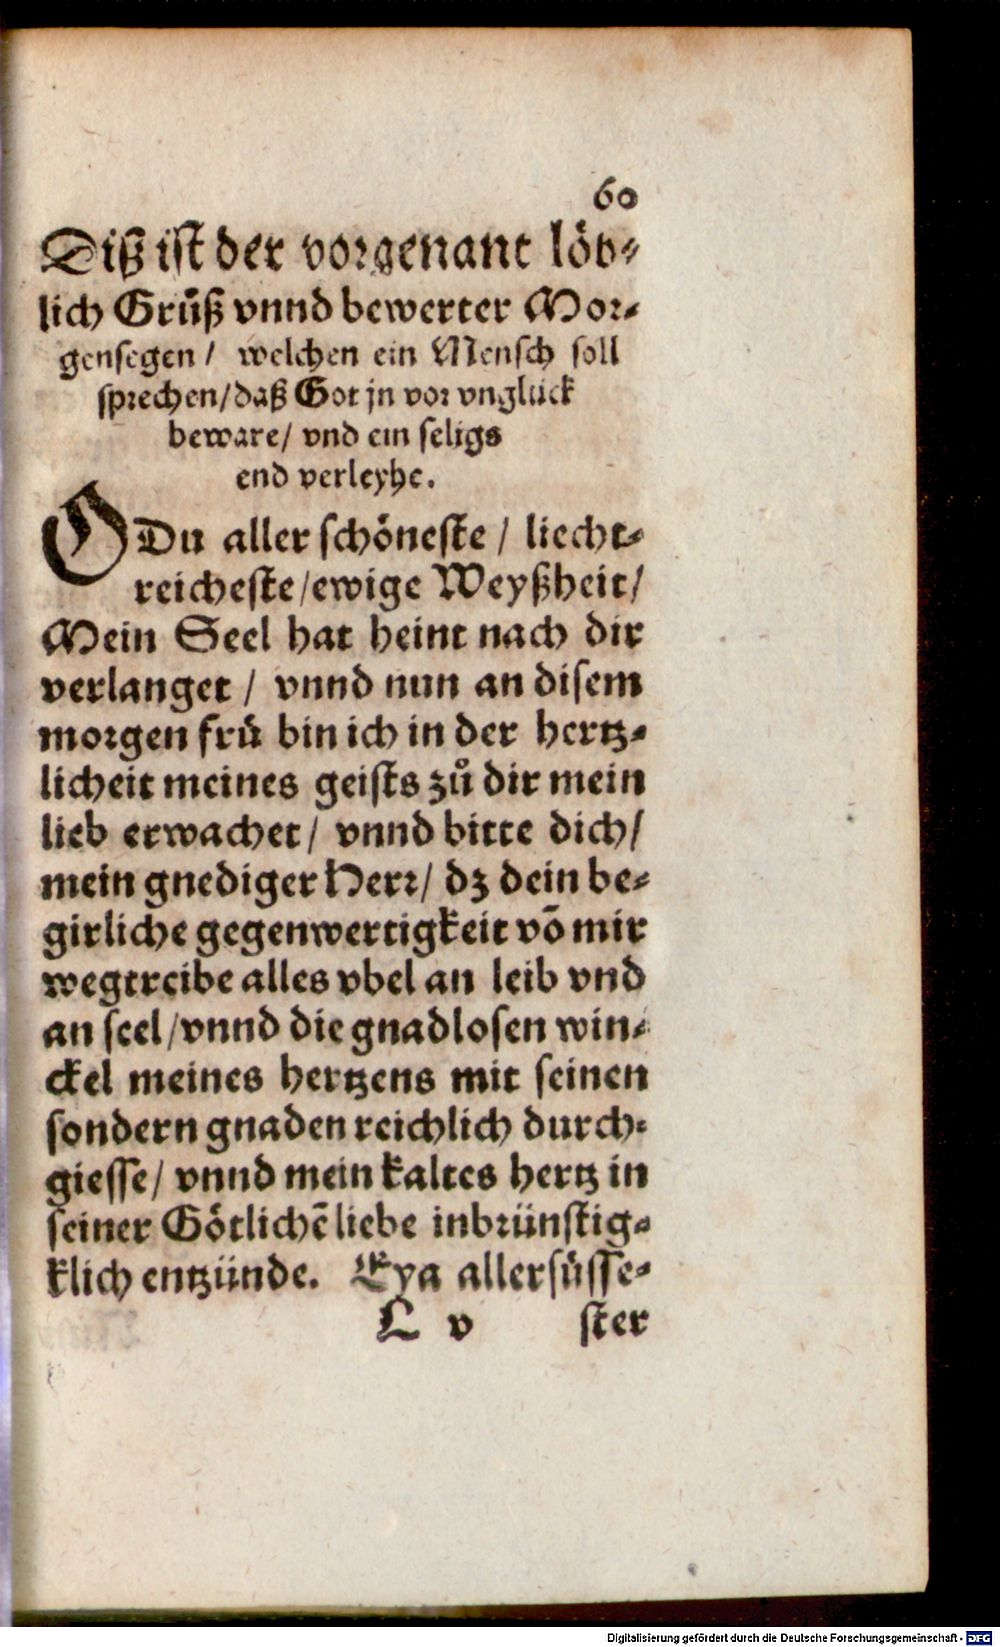 60
Diß ist der vorgenant löb-
lich Grůß vnnd bewerter Mor-
gensegen / welchen ein Mensch soll
sprechen / daß Got jn vor vnglück
beware / vnd ein seligs
end verleyhe.
O Du aller schöneste / liecht-
reicheste / ewige Weyßheit /
Mein Seel hat heint nach dir
verlanget / vnnd nun an disem
morgen frů bin ich in der hertz-
licheit meines geists zů dir mein
lieb erwachet / vnnd bitte dich /
mein gnediger Herr / dz dein be-
girliche gegenwertigkeit võ mir
wegtreibe alles vbel an leib vnd
an seel / vnnd die gnadlosen win-
ckel meines hertzens mit seinen
sondern gnaden reichlich durch-
giesse / vnnd mein kaltes hertz in
seiner Götlichẽ liebe inbrünstig-
klich entzünde. Eya allersüsse-
L v ster
Digitalisierung gefördert durch die Deutsche Forschungsgemeinschaft - DFG